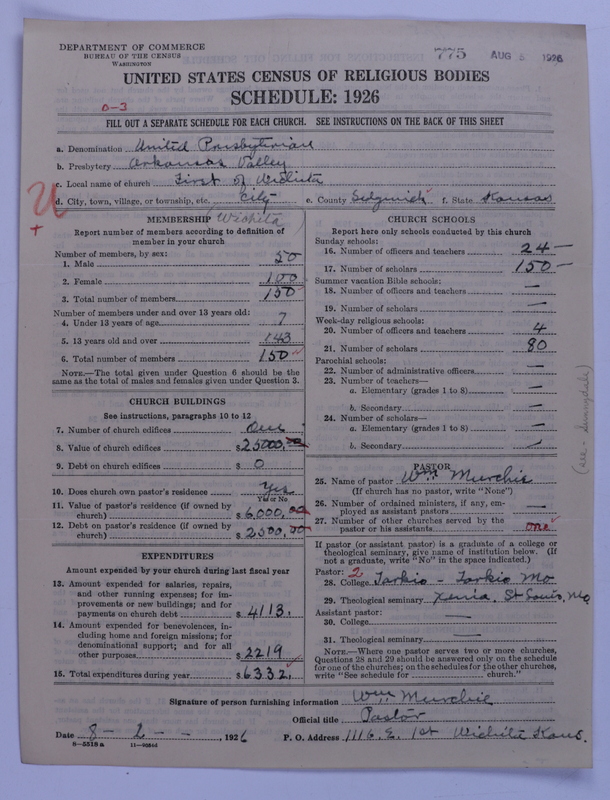 DEPARTMENT OF COMMERCE
BUREAU OF THE CENSUS
WASHINGTON
775
AUG 5 1926
UNITED STATES CENSUS OF RELIGIOUS BODIES
SCHEDULE: 1926
0-3
FILL OUT A SEPARATE SCHEDULE FOR EACH CHURCH. SEE INSTRUCTIONS ON THE BACK OF THIS SHEET
a. Denomination United Presbyterian
b. Presbytery Arkansas Valley
c. Local name of church First of Wichita
d. City, town, village, or township, etc. City e. County Sedgwick f. State Kansas
U
+
MEMBERSHIP Wichita
Report number of members according to definition of
member in your church
Number of members, by sex:
1. Male 50
2. Female 100
3. Total number of members 150
Number of members under and over 13 years old:
4. Under 13 years of age 7
5. 13 years old and over 143
6. Total number of members 150
NOTE.—The total given under Question 6 should be
same as the total of males and females given under Question 3.
CHURCH BUILDINGS
See instructions, paragraphs 10 to 12
7. Number of church edifices One
8. Value of church edifices $25000.00
9. Debt on church edifices $ 0
10. Does church own pastor's residence Yes
Yes or No
11. Value of pastor's residence (if owned by
church) $6,000.00
12. Debt on pastor's residence (if owned by
church) $2500.00
EXPENDITURES
Amount expended by your church during last fiscal year
13. Amount expended for salaries, repairs,
and other running expenses; for im-
provements or new buildings; and for
payments on church debt $4113.
14. Amount expended for benevolences, in-
cluding home and foreign missions; for
denominational support; and for all
other purposes $2219
15. Total expenditures during year $6332.
CHURCH SCHOOLS
Report here only schools conducted by this church
Sunday schools:
16. Number of officers and teachers 24 —
17. Number of scholars 150 —
Summer vacation Bible schools:
18. Number of officers and teachers —
19. Number of scholars —
Week-day religious schools:
20. Number of officers and teachers 4
21. Number of scholars 80
Parochial schools:
22. Number of administrative officers —
23. Number of teachers—
a. Elementary (grades 1 to 8) —
b. Secondary —
24. Number of scholars—
a. Elementary (grades 1 to 8) —
b. Secondary —
(see - Sunnydale)
PASTOR
25. Name of pastor Wm Murchie
(If church has no pastor, write "None")
26. Number of ordained ministers, if any, em-
ployed as assistant pastors —
27. Number of other churches served by the
pastor or his assistants one
If pastor (or assistant pastor) is a graduate of a college or
theological seminary, give name of institution below. (If
not a graduate, write "No" in the space indicated.)
Pastor: 2
28. College Tarkio - Tarkio Mo
29. Theological seminary Xenia, St Louis, Mo
Assistant pastor:
30. College —
31. Theological seminary —
NOTE.—Where one pastor serves two or more churches,
Questions 28 and 29 should be answered only on the schedule
for one of the churches; on the schedules for the other churches,
write "See schedule for church."
Signature of person furnishing information Wm Murchie
Official title Pastor
Date 8 - 2 - -, 1926 P. O. Address 1116. E. 1st Wichita Kans.
8—5519 a 11—9284d